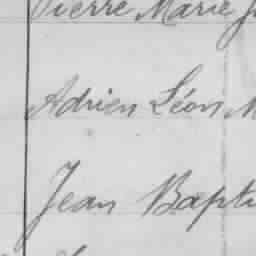 Pierre Marie
Adrien Léon
Jean Bapti